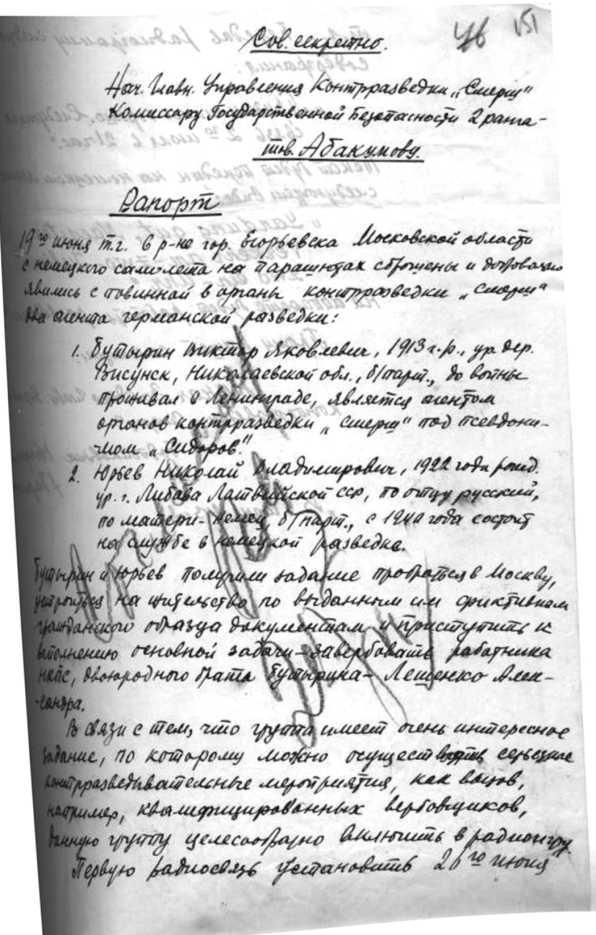 Сов. секретно.
46 151
Нач. Главн. Управления Контрразведки „Смерш"
Комиссару Государственной Безопасности 2 ранга-
тов. Абакумову.
Рапорт
19го июня т.г. в р-не гор. Егорьевска Московской области
с немецкого самолета на парашютах сброшены и добровольно
явились с повинной в органы контрразведки „Смерш"
два агента германской разведки:
1. Бутырин Виктор Яковлевич, 1913 г.р., ур. дер.
Висунск, Николаевской обл., б/парт., до войны
проживал в Ленинграде, является агентом
органов контрразведки „Смерш" под псевдони-
мом „Сидоров."
2. Юрьев Николай Владимирович, 1922 года рожд.
ур. г. Либава Латвийской ССР, по отцу русский,
по матери- немец, б/парт., с 1940 года состоит
на службе в немецкой разведке.
Бутырин и Юрьев получили задание пробраться в Москву,
устроиться на жительство по выданным им фиктивным
гражданского образца документам и приступить к
выполнению основной задачи- завербовать работника
НКПС, двоюродного брата Бутырина- Лещенко Алек-
сандра.
В связи с тем, что группа имеет очень интересное
задание, по которому можно осуществить серьезные
контрразведывательные мероприятия, как вызов,
например, квалифицированных вербовщиков,
данную группу целесообразно включить в радиоигру.
Первую радиосвязь установить 20го июня